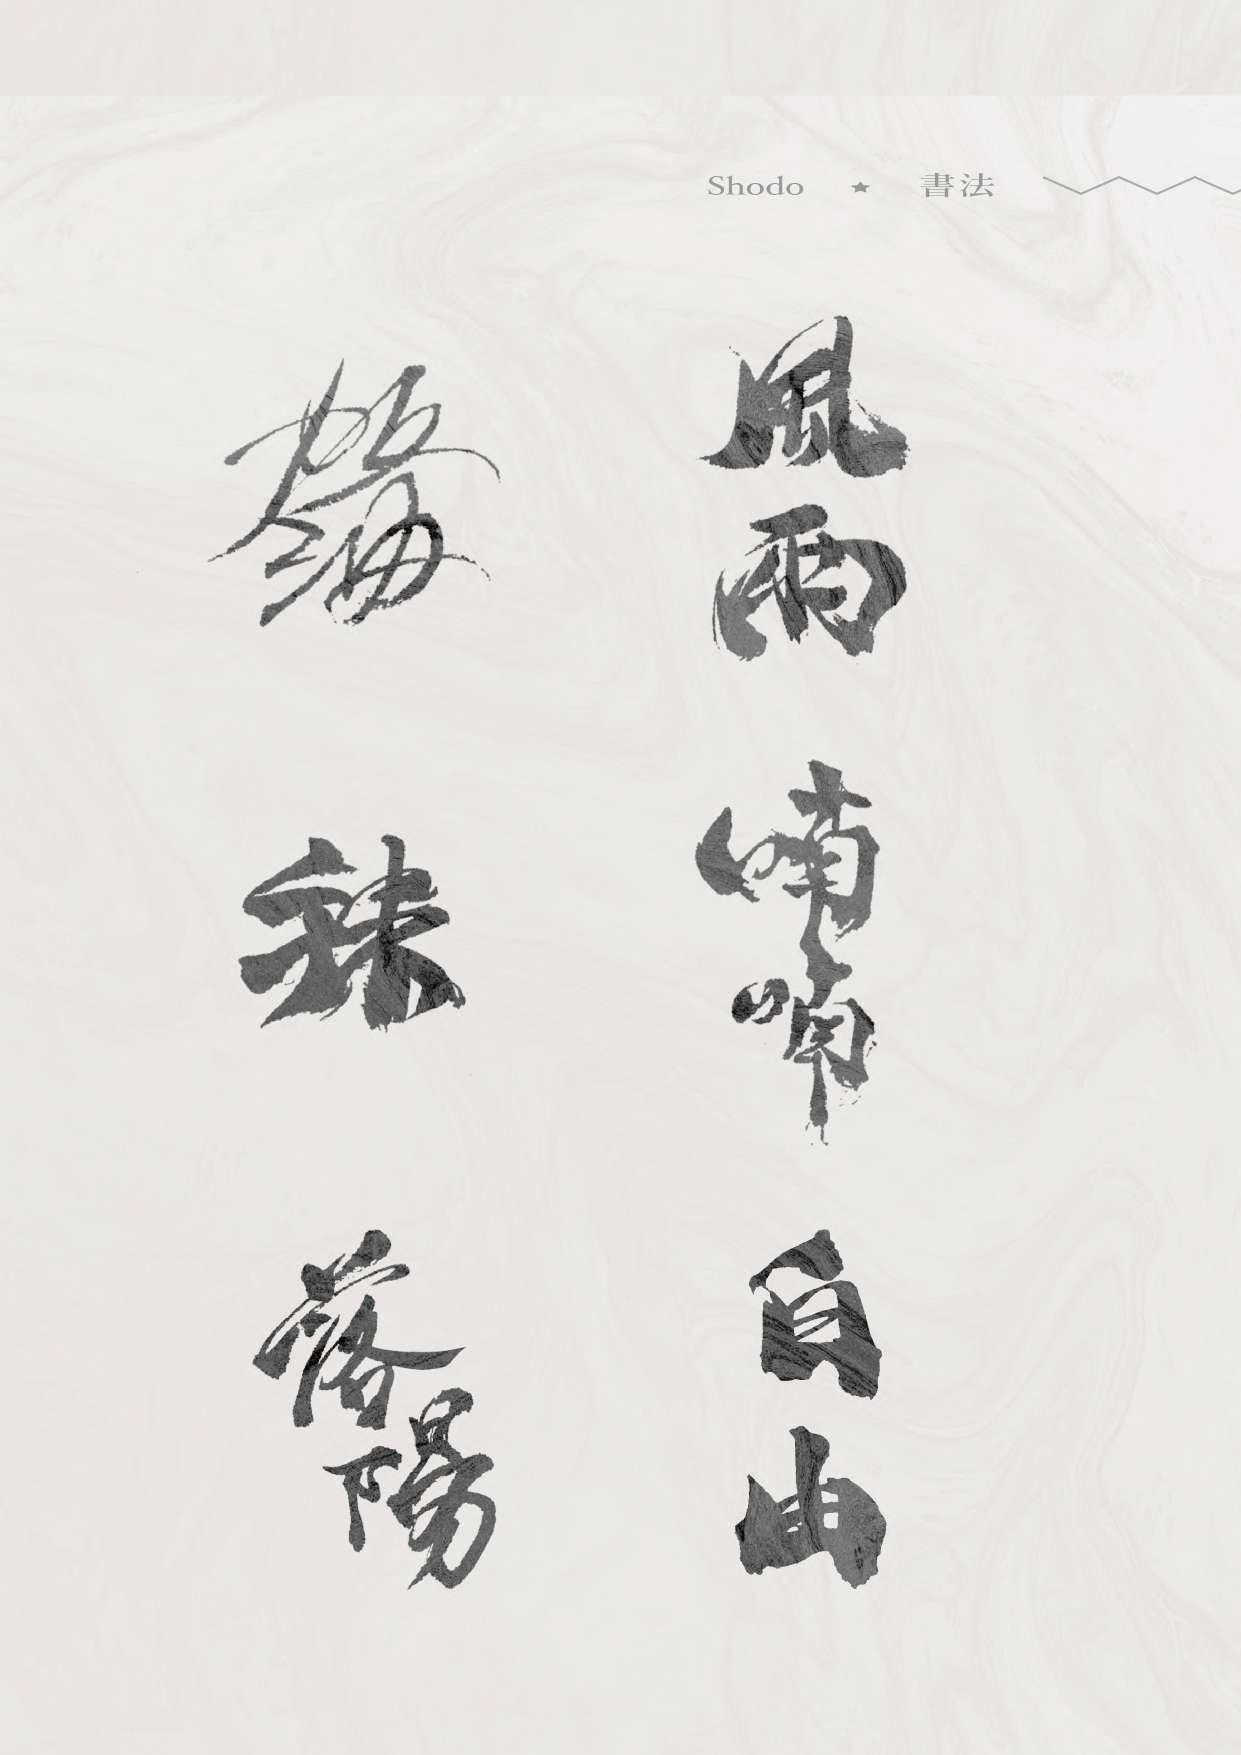 Shodo ★ 書法
風雨
喃喃
自由
落陽